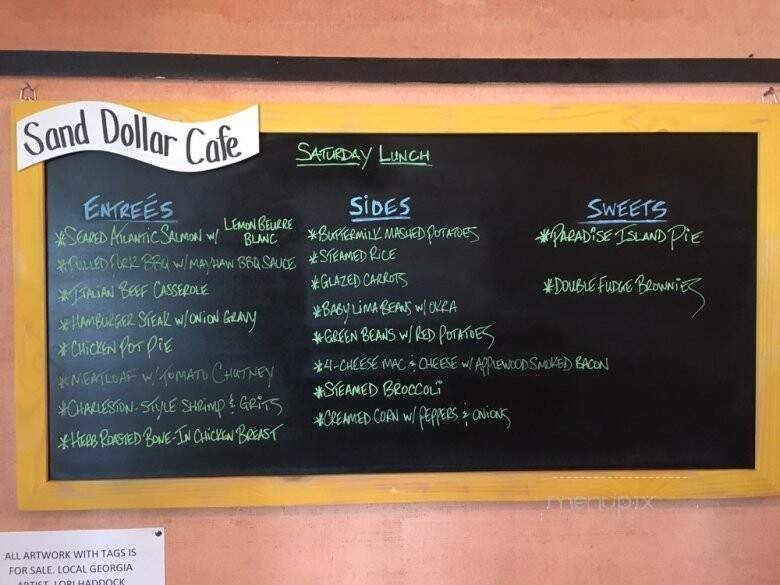 Sand Dollar Cafe
SATURDAY LUNCH
ENTREÉS
*SEARED ATLANTIC SALMON w/ LEMON BEURRE
BLANC
*PULLED PORK BBQ w/ MAYHAW BBQ SAUCE
*ITALIAN BEEF CASSEROLE
*HAMBURGER STEAK w/ ONION GRAVY
*CHICKEN POT PIE
*MEATLOAF w/ TOMATO CHUTNEY
*CHARLESTON-STYLE SHRIMP & GRITS
*HERB ROASTED BONE-IN CHICKEN BREAST
SIDES
*BUTTERMILK MASHED POTATOES
*STEAMED RICE
*GLAZED CARROTS
*BABY LIMA BEANS w/ OKRA
*GREEN BEANS w/ RED POTATOES
*4-CHEESE MAC & CHEESE w/ APPLEWOOD SMOKED BACON
*STEAMED BROCCOLI
*CREAMED CORN w/ PEPPERS & ONIONS
SWEETS
*PARADISE ISLAND PIE
*DOUBLE FUDGE BROWNIES
menupix
ALL ARTWORK WITH TAGS IS
FOR SALE. LOCAL GEORGIA
ARTIST, LORI HADDOCK